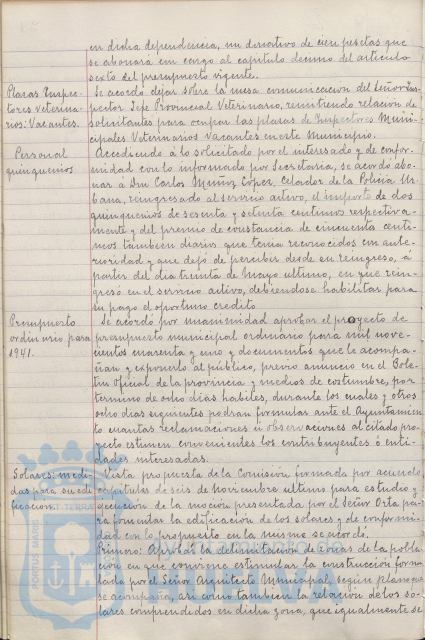 en dicha dependencia, un donativo de cien pesetas que
se abonará con cargo al capítulo décimo del artículo
sexto del presupuesto vigente.
Plazas Inspec-
tores veterina-
rios: Vacantes.
Se acordó dejar sobre la mesa comunicación del Señor Ins-
pector Jefe Provincial Veterinario, remitiendo relación de
solicitantes para ocupar las plazas de Inspectores Muni-
cipales Veterinarios vacantes en este Municipio.
Personal
quinquenios
Accediendo á lo solicitado por el interesado y de confor-
midad con lo informado por Secretaría, se acordó abo-
nar á Don Carlos Muñoz López, Celador de la Policía Ur-
bana, reingresado al servicio activo, el importe de dos
quinquenios de sesenta y setenta centimos respectiva-
mente y del premio de constancia de cincuenta centi-
mos tambien diarios que tenía reconocidos con ante-
rioridad y que dejó de percibir desde su reingreso, á
partir del dia treinta de Mayo ultimo, en que rein-
gresó en el servicio activo, debiendose habilitar para
su pago el oportuno crédito
Presupuesto
ordinario para
1941.
Se acordó por unanimidad aprobar el proyecto de
presupuesto municipal ordinario para mil nove-
cientos cuarenta y uno y documentos que le acompa-
ñan y exponerlo al público, previo anuncio en el Bole-
tin Oficial de la provincia y medios de costumbre, por
termino de ocho dias habiles, durante los cuales y otros
ocho dias siguientes podran formular ante el Ayuntamien-
to cuantas reclamaciones ú observaciones al citado pro-
yecto estimen convenientes los contribuyentes ó enti-
dades interesadas.
Solares: medi-
das para su edi-
ficacion.
Vista propuesta de la Comisión formada por acuerdo
capitular de seis de Noviembre ultimo para estudio y
ejecución de la moción presentada por el Señor Orta pa-
ra fomentar la edificación de los solares y de conformi-
dad con lo propuesto en la misma se acordó.
Primero: Aprobar la delimitacion de zonas de la pobla-
ción en que conviene estimular la construcción formu-
lada por el Señor Arquitecto Municipal, según plano que
se acompaña, asi como tambien la relación de los so-
lares comprendidos en dicha zona, que igualmente se